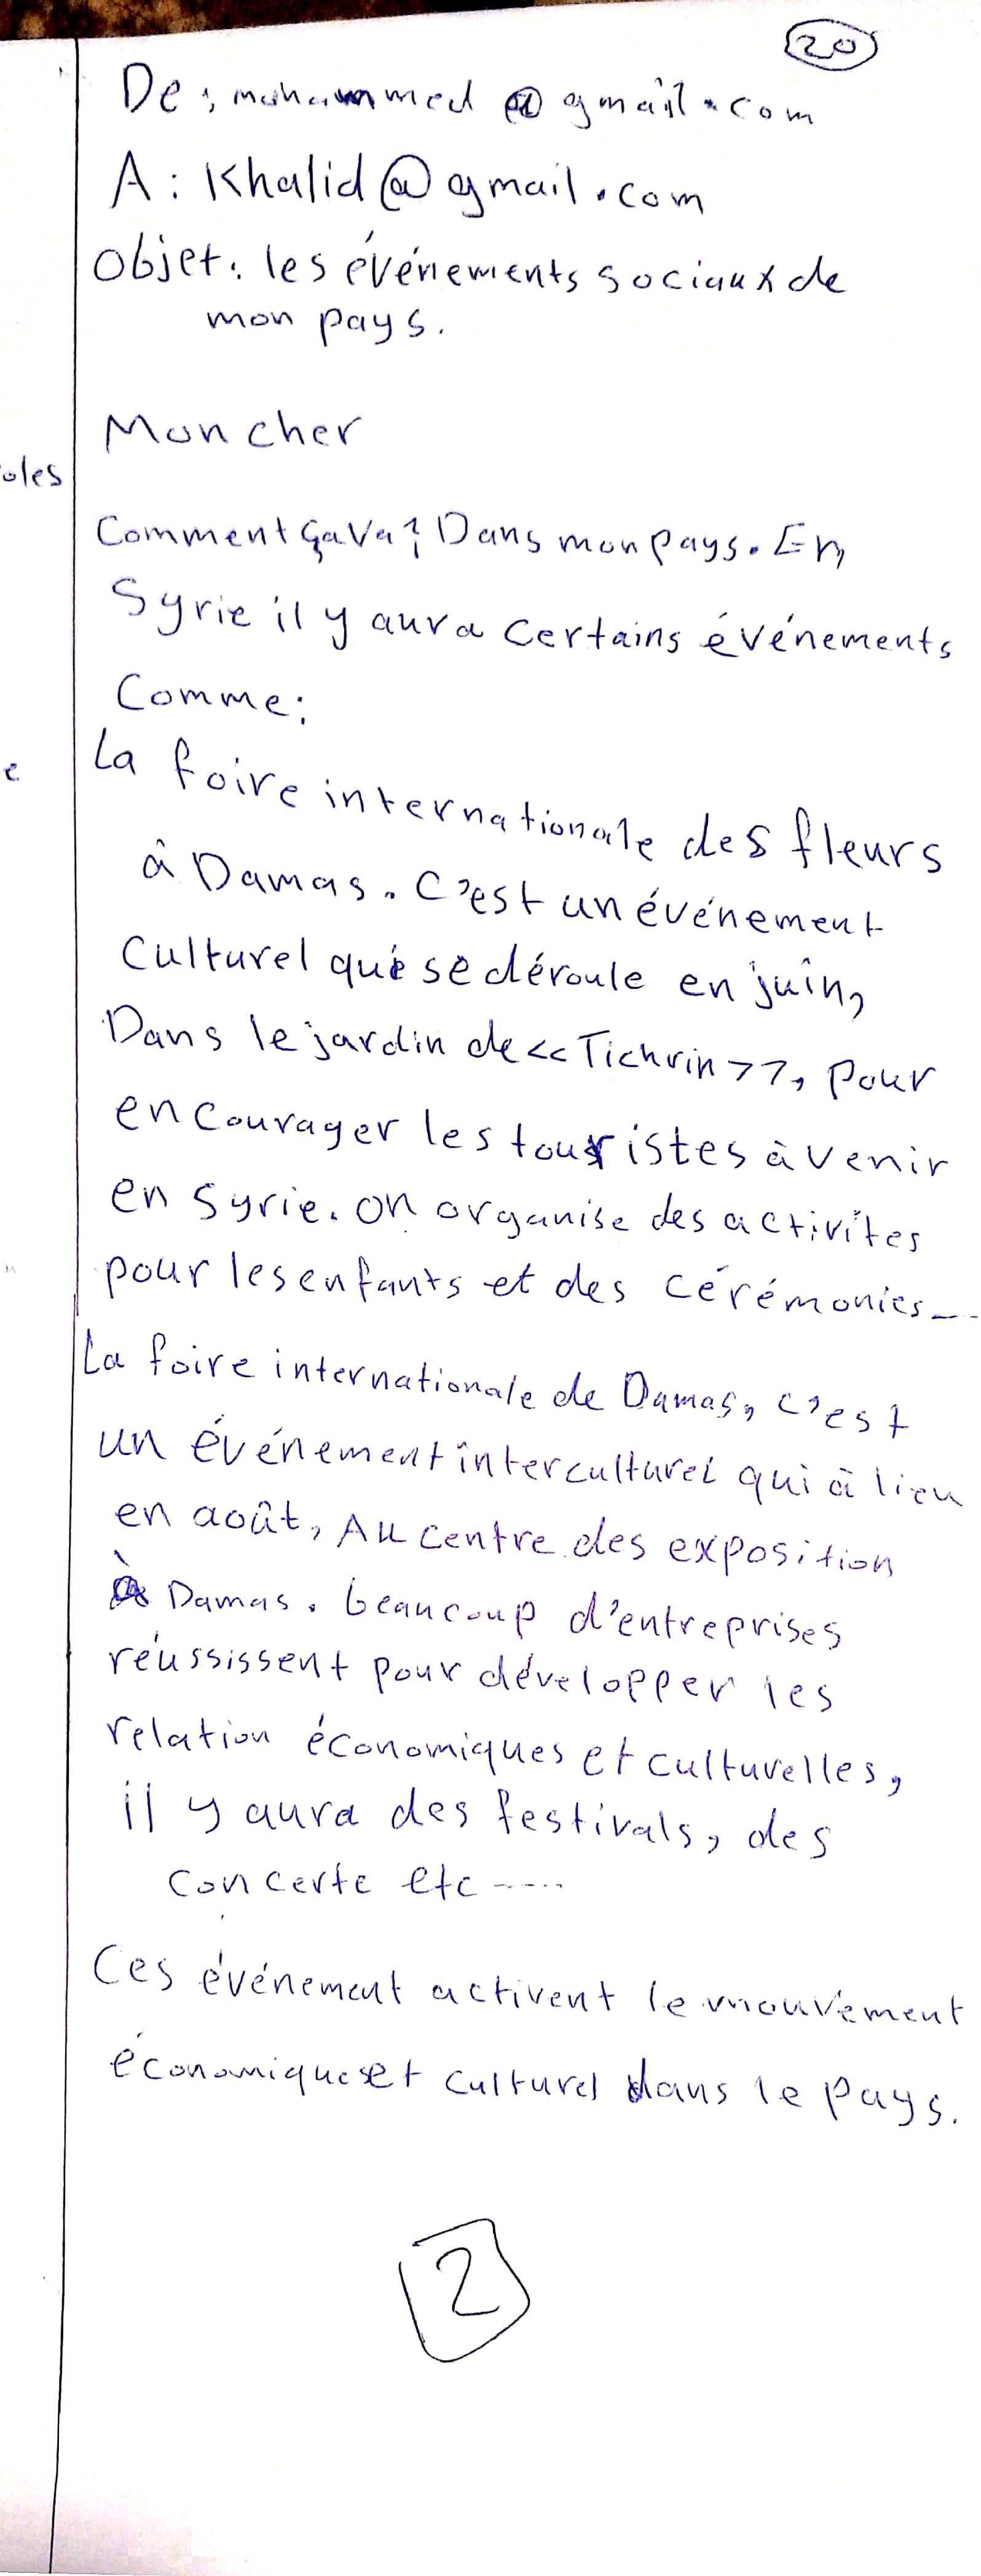 20
De: mohammed @ gmail.com
A: Khalid@gmail.com
Objet: les événements sociaux de
mon pays.
Mon cher
oles
Comment ça va? Dans mon pays. En
Syrie il y aura certains événements
Comme:
La foire internationale des fleurs
e
à Damas. C'est un événement
Culturel qui se déroule en juin,
Dans le jardin de << Tichrin >>, pour
encourager les touristes à venir
en Syrie. on organise des activités
pour les enfants et des cérémonies...
La foire internationale de Damas, c'est
un événement interculturel qui à lieu
en août, Au centre des exposition
À Damas. beaucoup d'entreprises
réussissent pour développer les
relation économiques et culturelles,
il y aura des festivals, des
concerte etc....
Ces événement activent le mouvement
économique et culturel dans le pays.
2